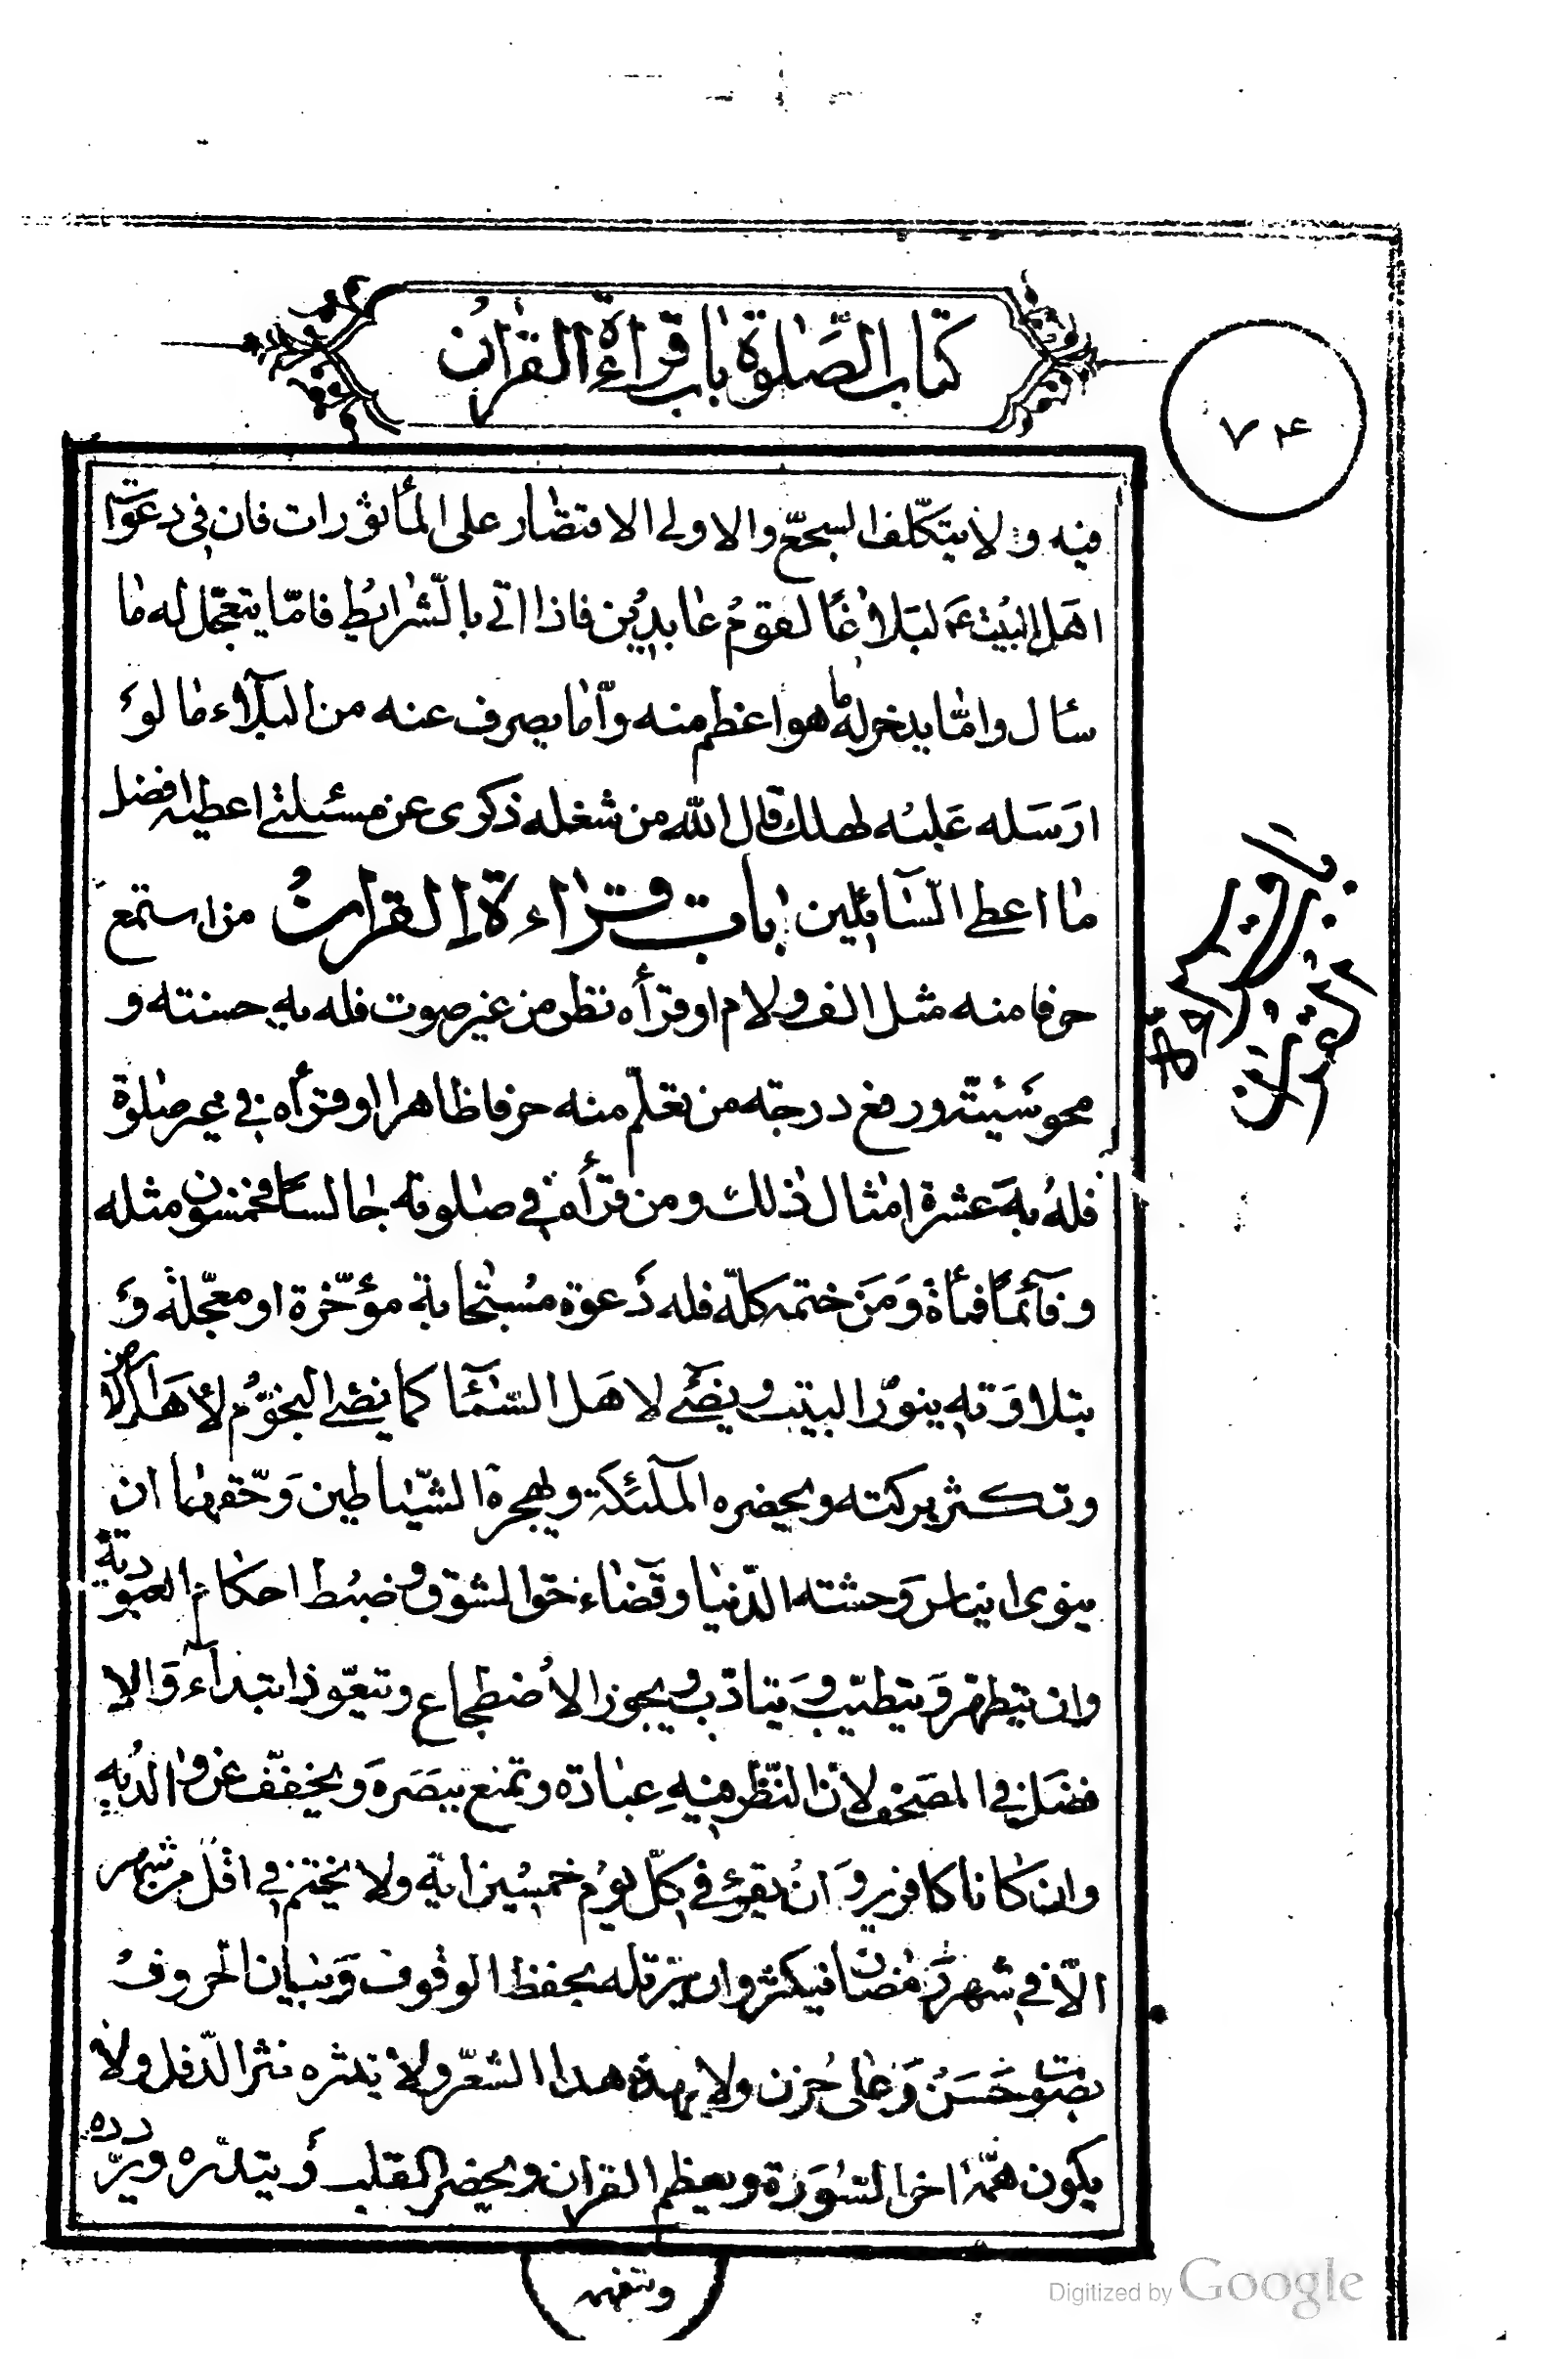 كتاب الصّلوة باب قراءة القران
٧٤
فيه ولا يتكلّف السجّع والاولى الاقتصار على المأثورات فان فى دعوا
اهل البيت ع لبلاغا لقوم عابدين فاذا اتى بالشّرايط فامّا يتعجّل له ما
سئال وامّا يدخر له ما هو اعظم منه وامّا يصرف عنه من البلاء ما لو
ارسله عليه لهلك قال الله من شغله ذكرى عن مسئلتى اعطيه افضل
ما اعطى السّائلين باب قراءة القران من استمع
حرفا منه مثل الف ولام او قرأه نظر من غير صوت فله به حسنته و
محو سيئته ورفع درجته من تعلّم منه حرفا ظاهرا او قرأه فى غير صلوة
فله به عشرة امثال ذلك ومن قرأه فى صلوته جالسا فخمسون مثله
وقآئما فمأة ومن ختمه كلّه فله دعوة مستجابة مؤخّرة او معجّلة و
بتلاوته ينوّر البيت ويضئ لاهل السّماء كما يضئ النجوم لاهل الارض
وتكثر بركته ويحضره الملئكة ويهجره الشّياطين وحقهما ان
ينوى ايناس وحشته الدّنيا وقضاء حق الشوق وضبط احكام العبودية
وان يتطهر ويتطيّب ويتادّب ويجوز الاضطجاع ويتعوّذ ابتداء والا
فضل فى المصحف لان النّظر فيه عبادة ويمتع ببصره ويخفّف عن والديه
وان كانا كافرين وان يقرئ فى كلّ يوم خمسين اية ولا يختم فى اقل من شهر
الّا فى شهر رمضان فيكثر وان يرتّله بحفظ الوقوف وبيان الحروف
بصوت حسن وعلى حزن ولا يهذه هذا الشعر ولا ينثره نثر الدّقل ولا
يكون همّه اخر السّورة ويعظم القران ويحضر القلب ويتدبّره ويردده
ويتفهمه
Digitized by Google